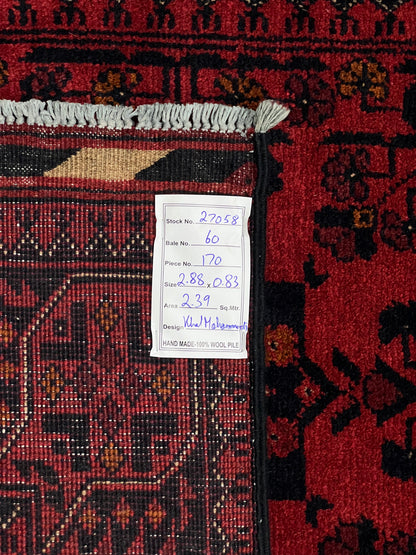 Stock No. 27058
Bale No. 60
Piece No. 170
Size 2.88 x 0.83
Area 2.39 Sq.Mtr.
Design Khal Mohammadi
HAND MADE-100% WOOL PILE